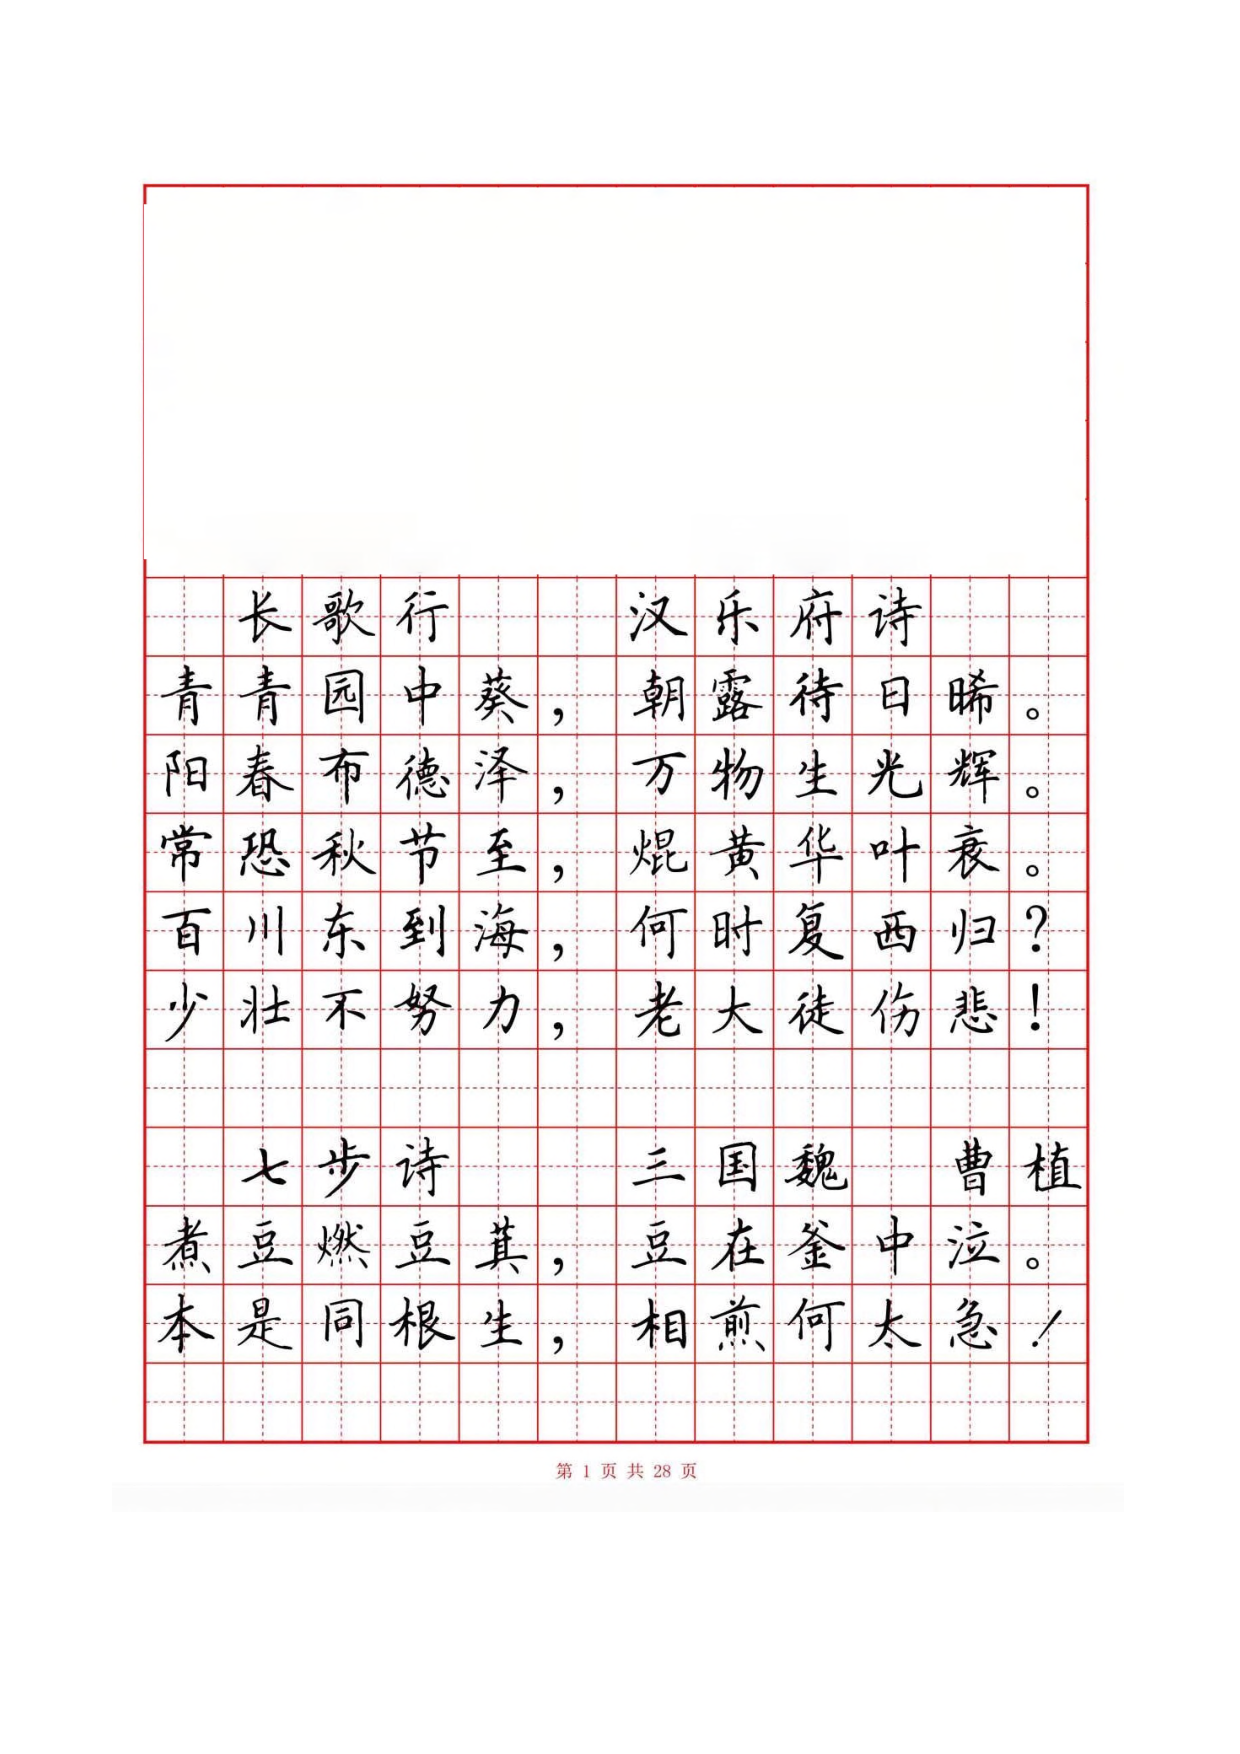 长歌行 汉乐府诗
青青园中葵，朝露待日晞。
阳春布德泽，万物生光辉。
常恐秋节至，焜黄华叶衰。
百川东到海，何时复西归？
少壮不努力，老大徒伤悲！
七步诗 三国魏 曹植
煮豆燃豆萁，豆在釜中泣。
本是同根生，相煎何太急！
第 1 页 共 28 页